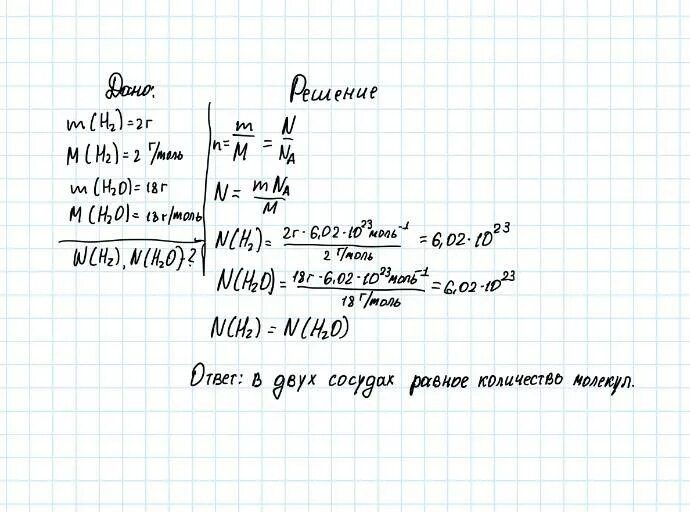 Дано:
m(H₂)=2г
M(H₂)=2 г/моль
m(H₂O)=18г
M(H₂O)=18г/моль
N(H₂), N(H₂O)-?
Решение
n = m/M = N/Nᴀ
N = mNᴀ/M
N(H₂) = 2г·6,02·10²³моль⁻¹ / 2 г/моль = 6,02·10²³
N(H₂O) = 18г·6,02·10²³моль⁻¹ / 18 г/моль = 6,02·10²³
N(H₂) = N(H₂O)
Ответ: в двух сосудах равное количество молекул.